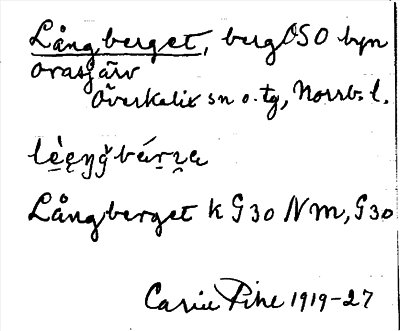 Långberget, berg OSO byn
Orasjärv
Överkalix sn o. tg, Norrb. l.
lèęŋgbárn̥a
Långberget k G30 Nm, G30
Carin Pihl 1919-27